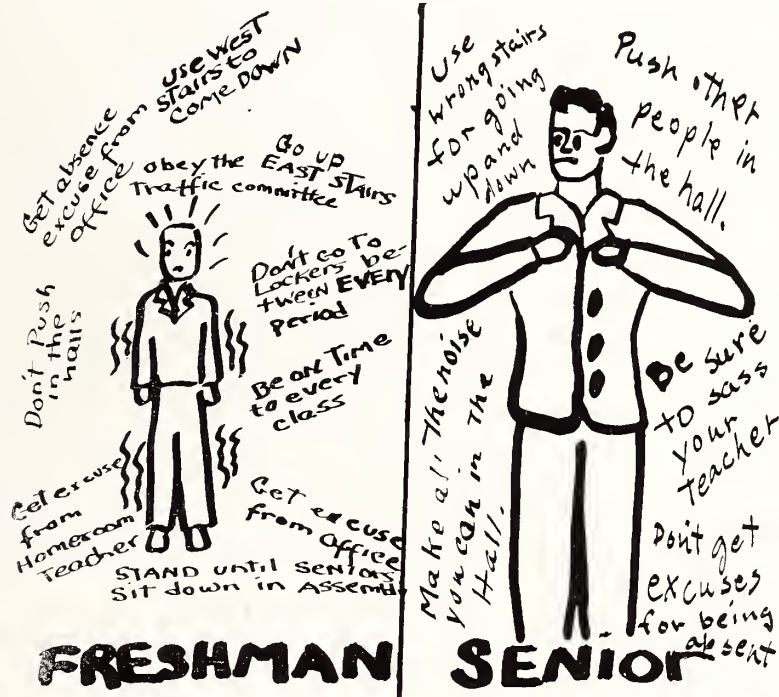 Get absence
excuse from
office
use WEST
STairs to
COME DOWN
obey the
Traffic committee
Go up
EAST STAIRS
Don't Go To
Lockers be-
tween EVERY
period
Don't Push
in the
halls
Be on Time
to every
class
Get excuse
from
Homeroom
Teacher
Get excuse
from Office
STAND until SENIORS
Sit down in Assembly
FRESHMAN
Use
wrong stairs
for going
up and
down
Push other
people in
the hall.
Make all The noise
you can in The
Hall.
Be sure
to sass
your
Teacher
Don't get
excuses
for being
absent
SENiOr